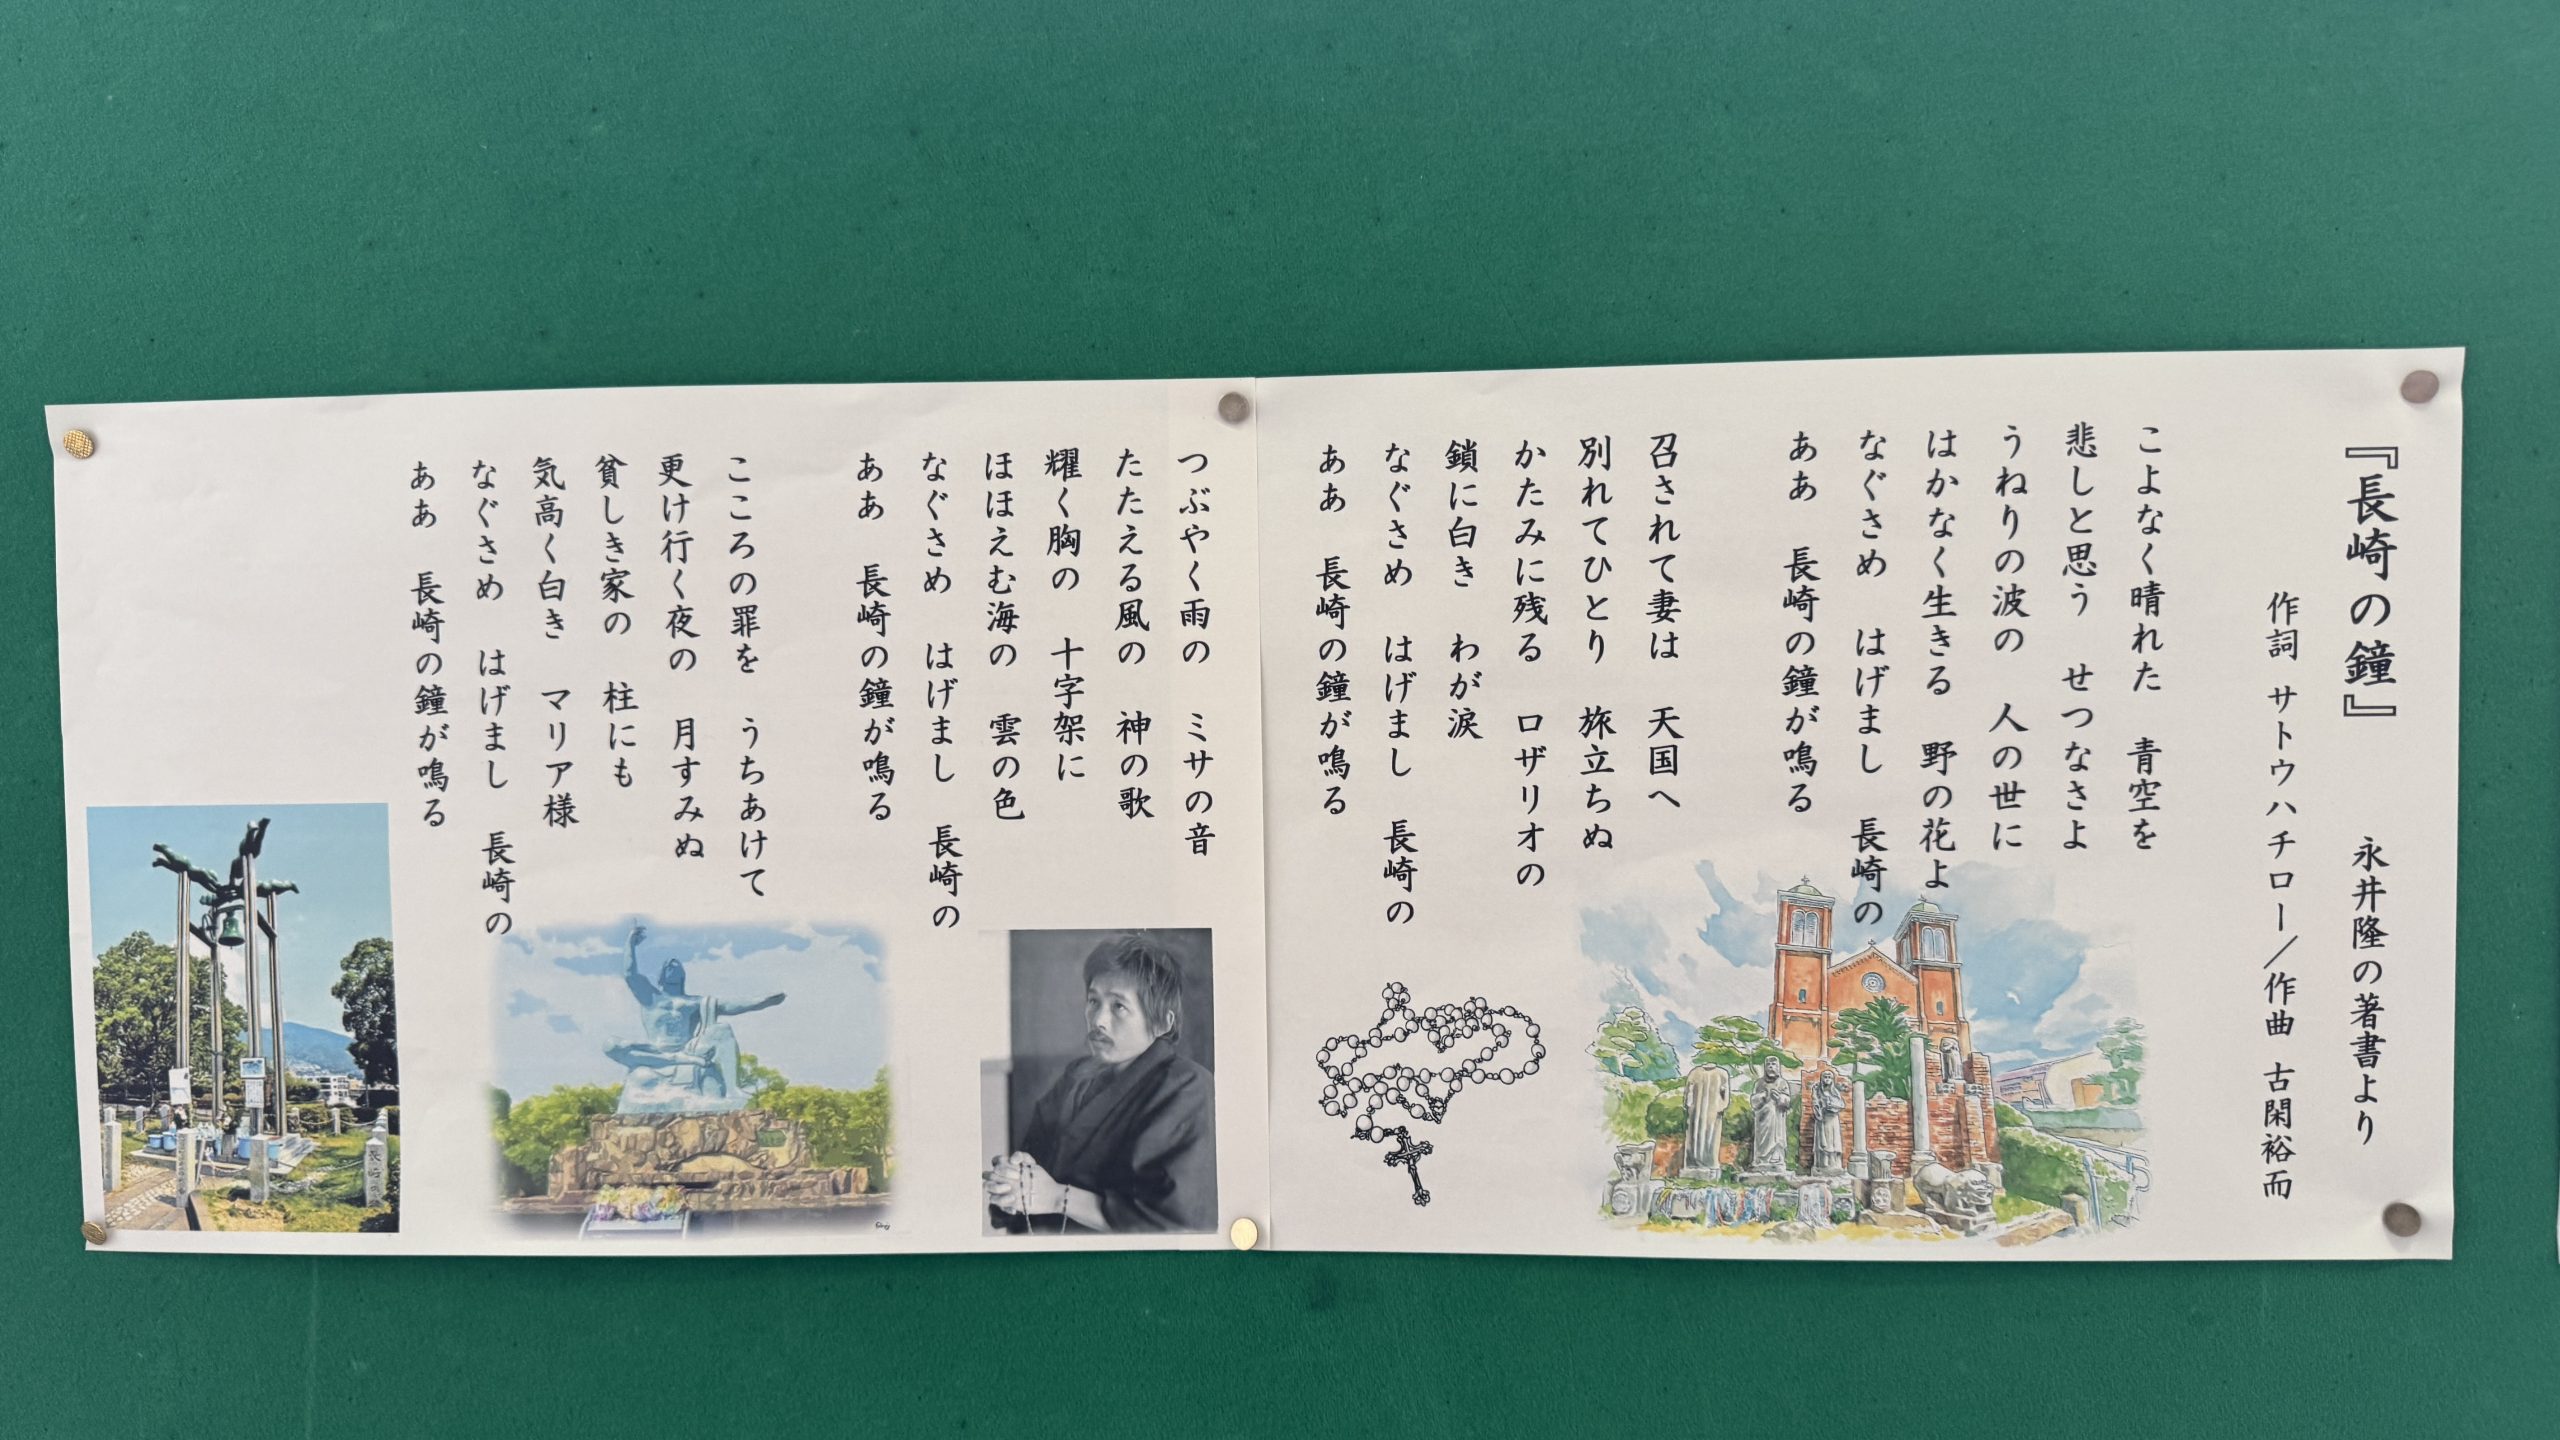 『長崎の鐘』　永井隆の著書より
作詞 サトウハチロー／作曲 古関裕而
こよなく晴れた　青空を
悲しと思う　せつなさよ
うねりの波の　人の世に
はかなく生きる　野の花よ
なぐさめ　はげまし　長崎の
ああ　長崎の鐘が鳴る
召されて妻は　天国へ
別れてひとり　旅立ちぬ
かたみに残る　ロザリオの
鎖に白き　わが涙
なぐさめ　はげまし　長崎の
ああ　長崎の鐘が鳴る
つぶやく雨の　ミサの音
たたえる風の　神の歌
耀く胸の　十字架に
ほほえむ海の　雲の色
なぐさめ　はげまし　長崎の
ああ　長崎の鐘が鳴る
こころの罪を　うちあけて
更け行く夜の　月すみぬ
貧しき家の　柱にも
気高く白き　マリア様
なぐさめ　はげまし　長崎の
ああ　長崎の鐘が鳴る